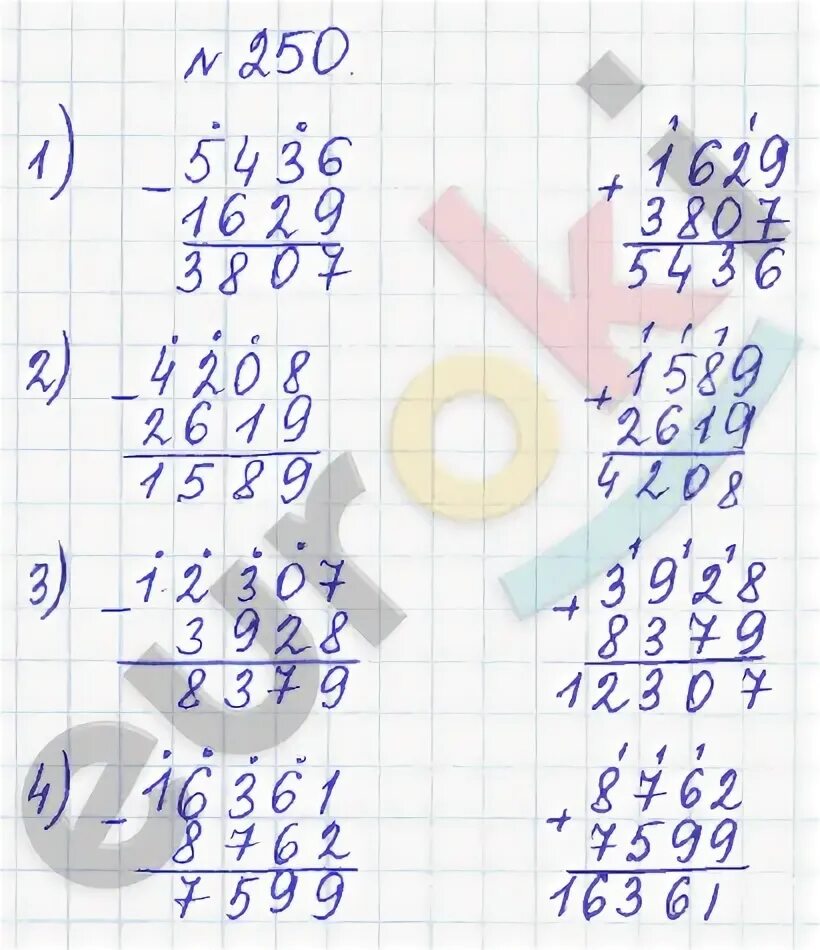 № 250.
1) − 5436
1629
3807
+ 1629
3807
5436
2) − 4208
2619
1589
+ 1589
2619
4208
3) − 12307
3928
8379
+ 3928
8379
12307
4) − 16361
8762
7599
+ 8762
7599
16361
euroki